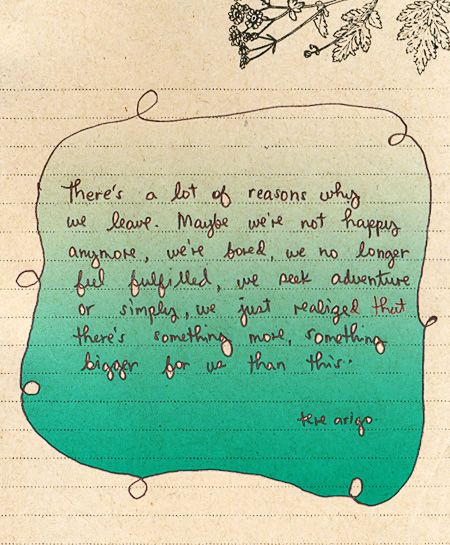 There's a lot of reasons why
we leave. Maybe we're not happy
anymore, we're bored, we no longer
feel fulfilled, we seek adventure
or simply, we just realized that
there's something more, something
bigger for us than this..
tere arigo